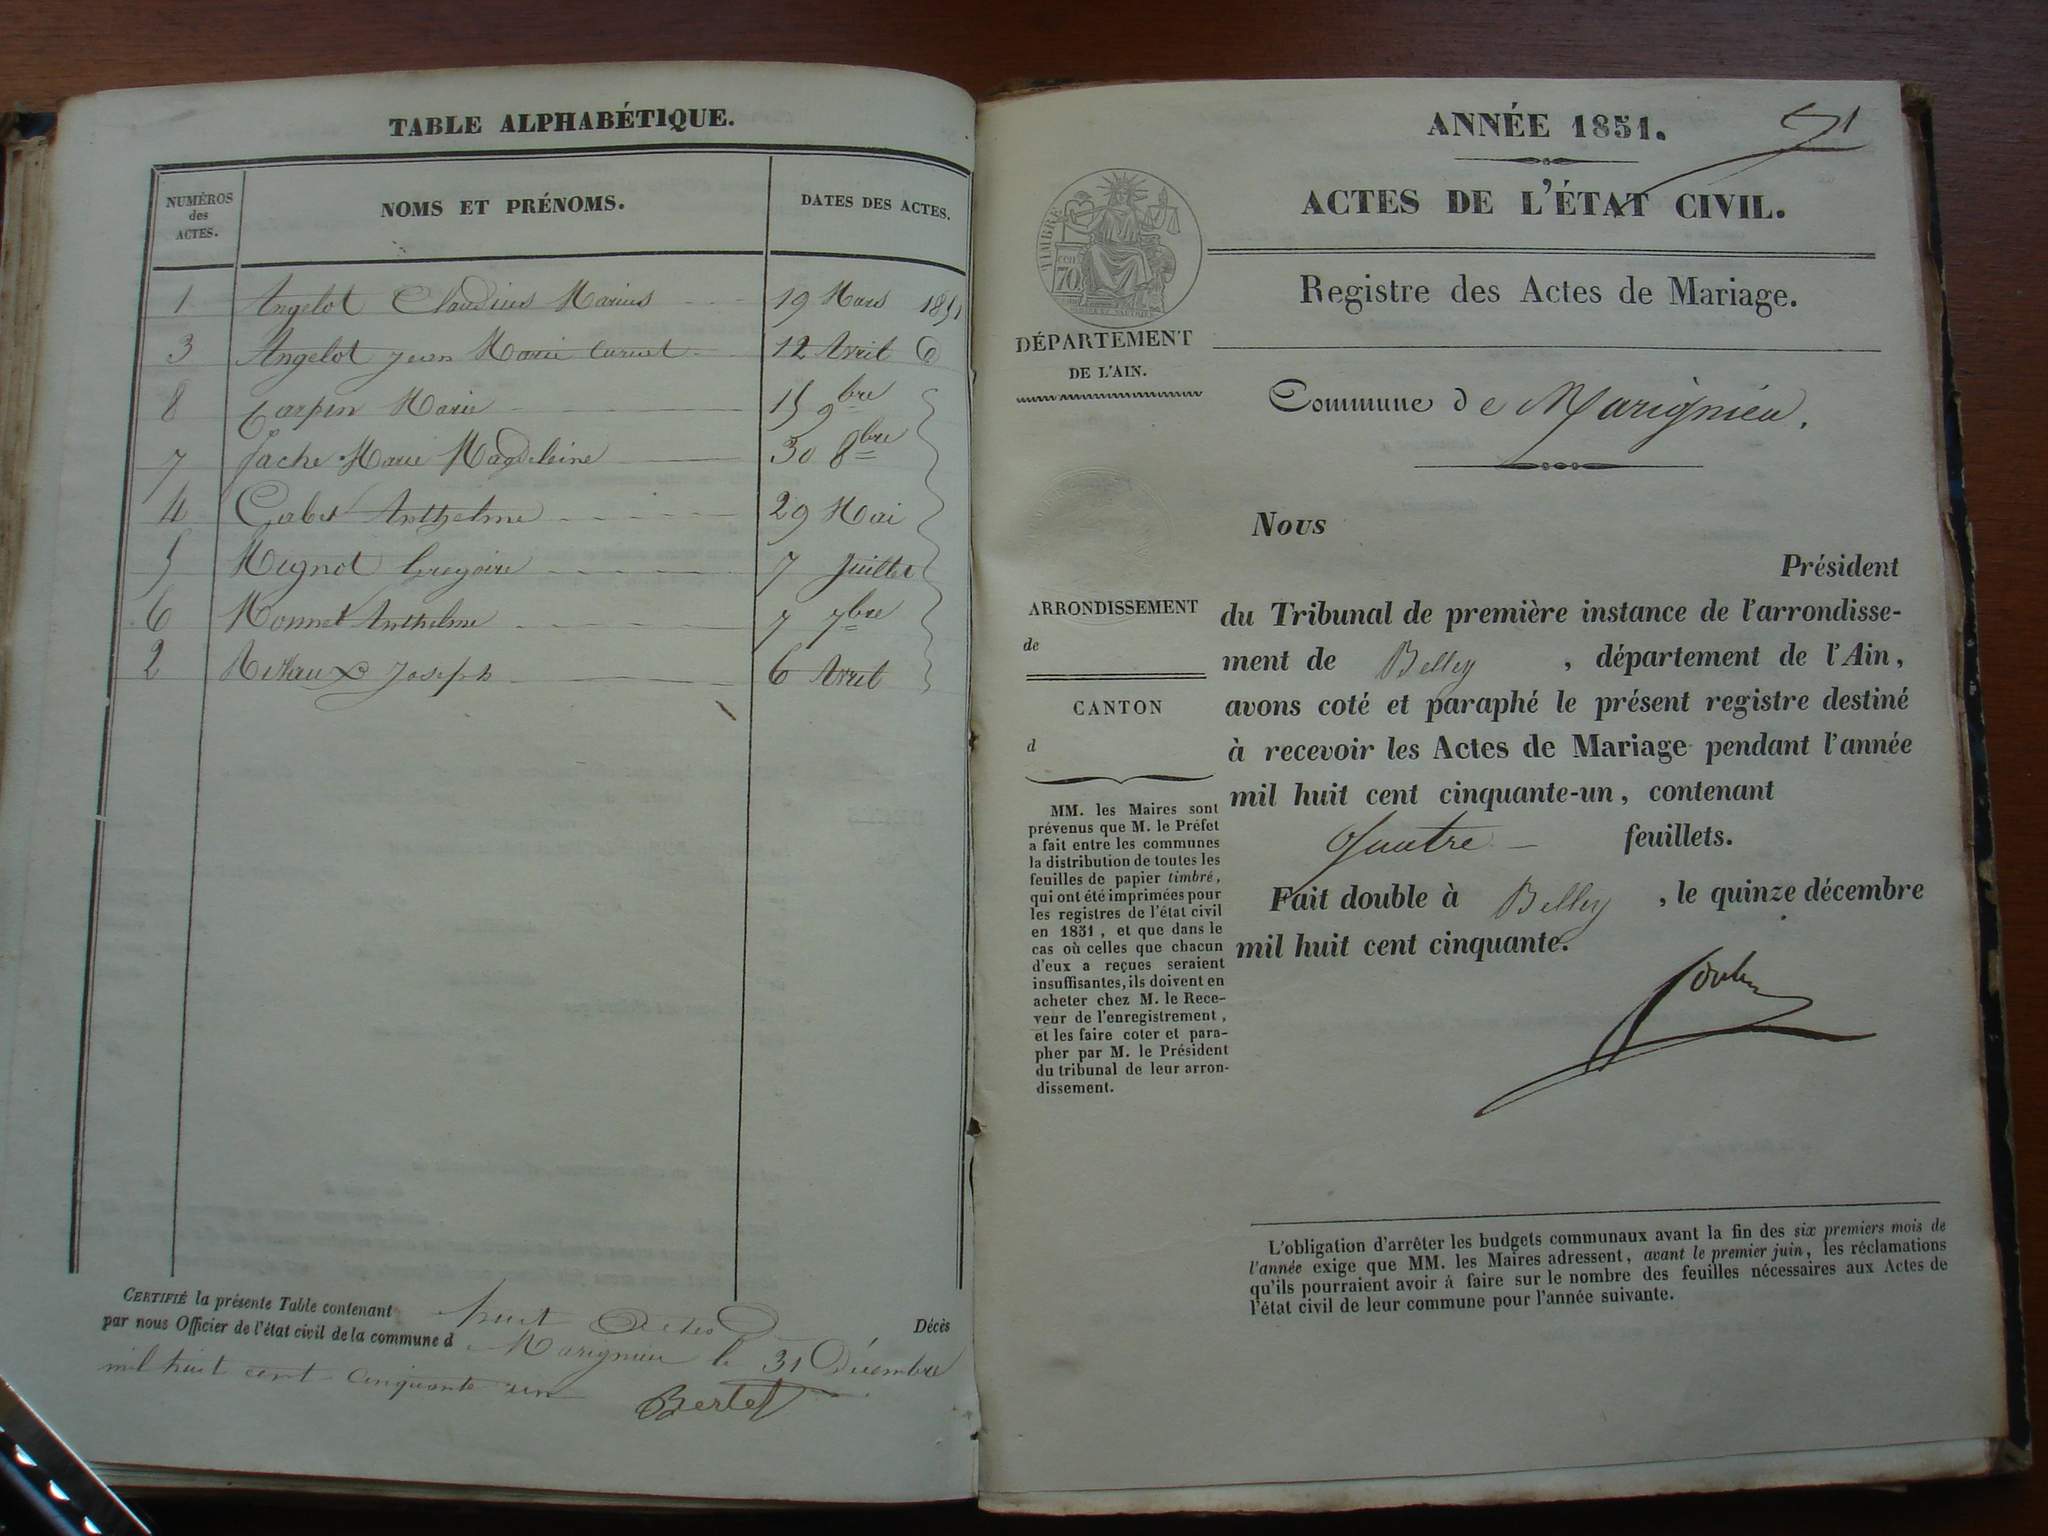 TABLE ALPHABÉTIQUE.
NUMÉROS des ACTES. NOMS ET PRÉNOMS. DATES DES ACTES.
1 Angelot Claudius Marius 19 Mars 1851
3 Angelot jean Marie 12 Avril
8 Carpin Marie 15 9bre
7 Jache Marie Magdeleine 30 8bre
4 Anthelme 29 Mai
5 Mignot Gregoire 7 Juillet
6 Monnet Anthelme 7 7bre
2 Joseph 6 Avril
CERTIFIÉ la présente Table contenant huit Actes Décès
par nous Officier de l'état civil de la commune d Marignieu le 31 Décembre
mil huit cent cinquante un
Bertet
ANNÉE 1851.
ACTES DE L'ÉTAT CIVIL.
TIMBRE
70
Registre des Actes de Mariage.
DÉPARTEMENT
DE L'AIN.
Commune de Marignieu.
Nous
Président
du Tribunal de première instance de l'arrondisse-
ment de Belley, département de l'Ain,
avons coté et paraphé le présent registre destiné
à recevoir les Actes de Mariage pendant l'année
mil huit cent cinquante-un, contenant
Quatre feuillets.
Fait double à Belley, le quinze décembre
mil huit cent cinquante.
ARRONDISSEMENT
de
CANTON
d
MM. les Maires sont
prévenus que M. le Préfet
a fait entre les communes
la distribution de toutes les
feuilles de papier timbré,
qui ont été imprimées pour
les registres de l'état civil
en 1851, et que dans le
cas où celles que chacun
d'eux a reçues seraient
insuffisantes, ils doivent en
acheter chez M. le Rece-
veur de l'enregistrement,
et les faire coter et para-
pher par M. le Président
du tribunal de leur arron-
dissement.
L'obligation d'arrêter les budgets communaux avant la fin des six premiers mois de
l'année exige que MM. les Maires adressent, avant le premier juin, les réclamations
qu'ils pourraient avoir à faire sur le nombre des feuilles nécessaires aux Actes de
l'état civil de leur commune pour l'année suivante.